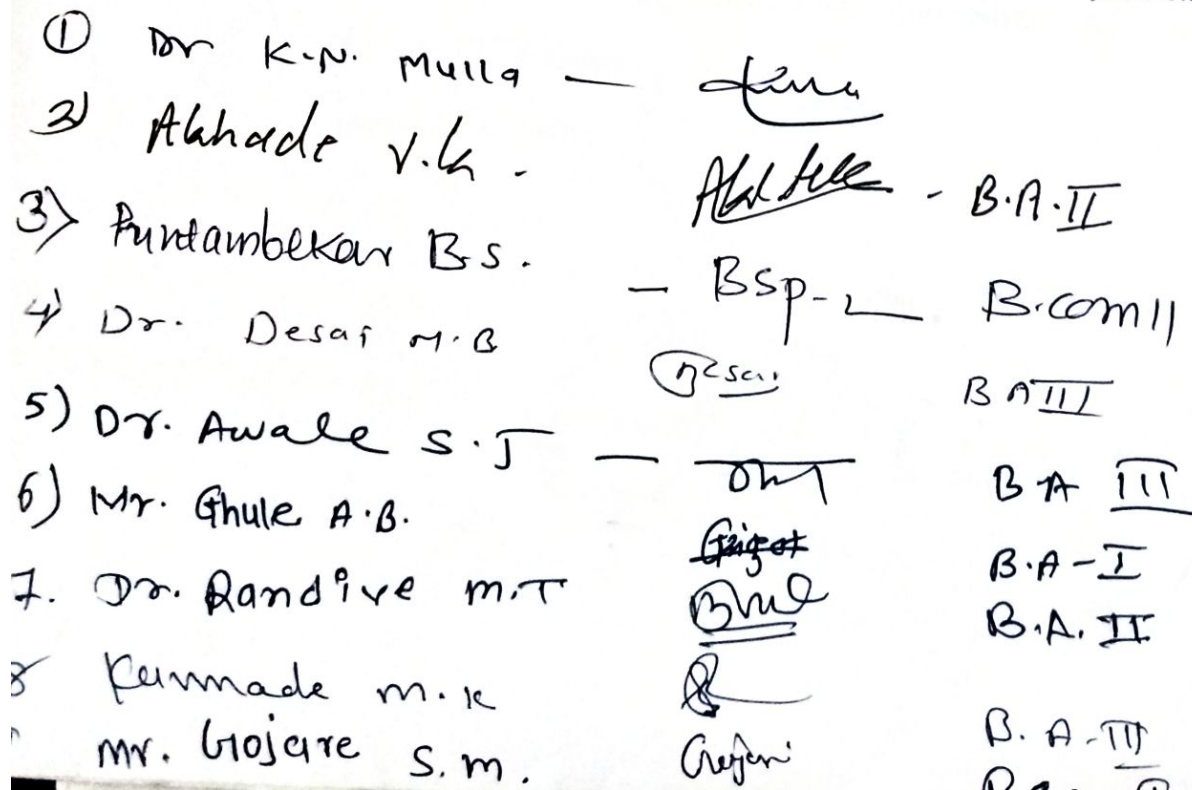 ① Dr K.N. Mulla —
2) Akhade V.K. - B.A.II
3) Puntambekar B.S. - BSP- B.com II
4) Dr. Desai M.B Desai B A III
5) Dr. Awale S.J — B A III
6) Mr. Ghule A.B. B.A-I
7. Dr. Randive M.T B.A. II
8 m.k B. A-III
Mr. Gojare S.M.